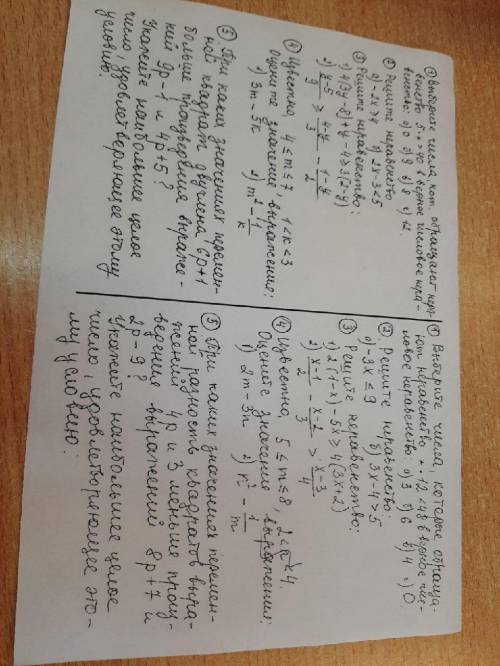 ① Выберите числа, кот. обращают нера-
венство 5·x > 40 в верное числовое нера-
венство: а) 0 б) 9 в) 8 г) 12.
② Решите неравенство
а) -2x ≥ 4 б) 2x - 3 < 5
③ Решите неравенство:
④ Известно, 4 ≤ m ≤ 7, 1 < k < 3
Оцените значение выражения:
1) 3m - 5k 2) m² - 1/k
⑤ При каких значениях перемен-
ной квадрат двучлена 6p+1
больше произведения выраже-
ний 9p-1 и 4p+5?
Укажите наибольшее целое
число, удовлетворяющее этому
условию.
① Выберите числа, которые обраща-
ют неравенство x·12 < 48 в верное чис-
ловое неравенство. а) 3 б) 6 в) 4 г) 0.
② Решите неравенство:
а) -3x ≤ 9 б) 3x - 4 > 5
③ Решите неравенство:
1) 2(1-x) - 5x ≥ 4(3x+2)
2) (x-1)/2 - (x-2)/3 > (x-3)/4
④ Известно, 5 ≤ m ≤ 8, 2 < n < 4.
Оцените значения выражения:
1) 2m - 3n 2) n² - 1/m
⑤ При каких значениях перемен-
ной разность квадратов выра-
жений 4p и 3 меньше произ-
ведения выражений 8p+7 и
2p-9?
Укажите наибольшее целое
число, удовлетворяющее это-
му условию: